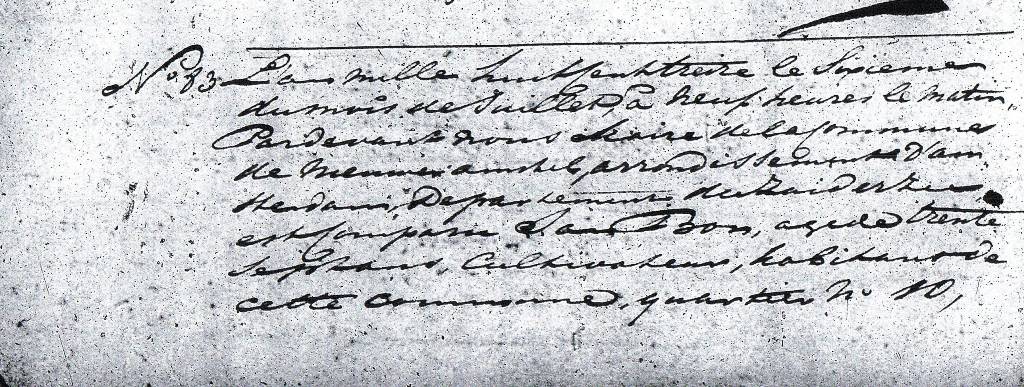 N° 83 L'an mille huit cent treize le Sixieme
du mois de Juillet, à neuf heures le matin,
Pardevant nous Maire de la Commune
de Nieuwer amstel, arrondissement d'am
sterdam, Departement du Zuiderzee
est Comparu Jan Bon, agé de trente
Sept ans, Cultivateur, habitant de
cette commune, quartier N° 10,